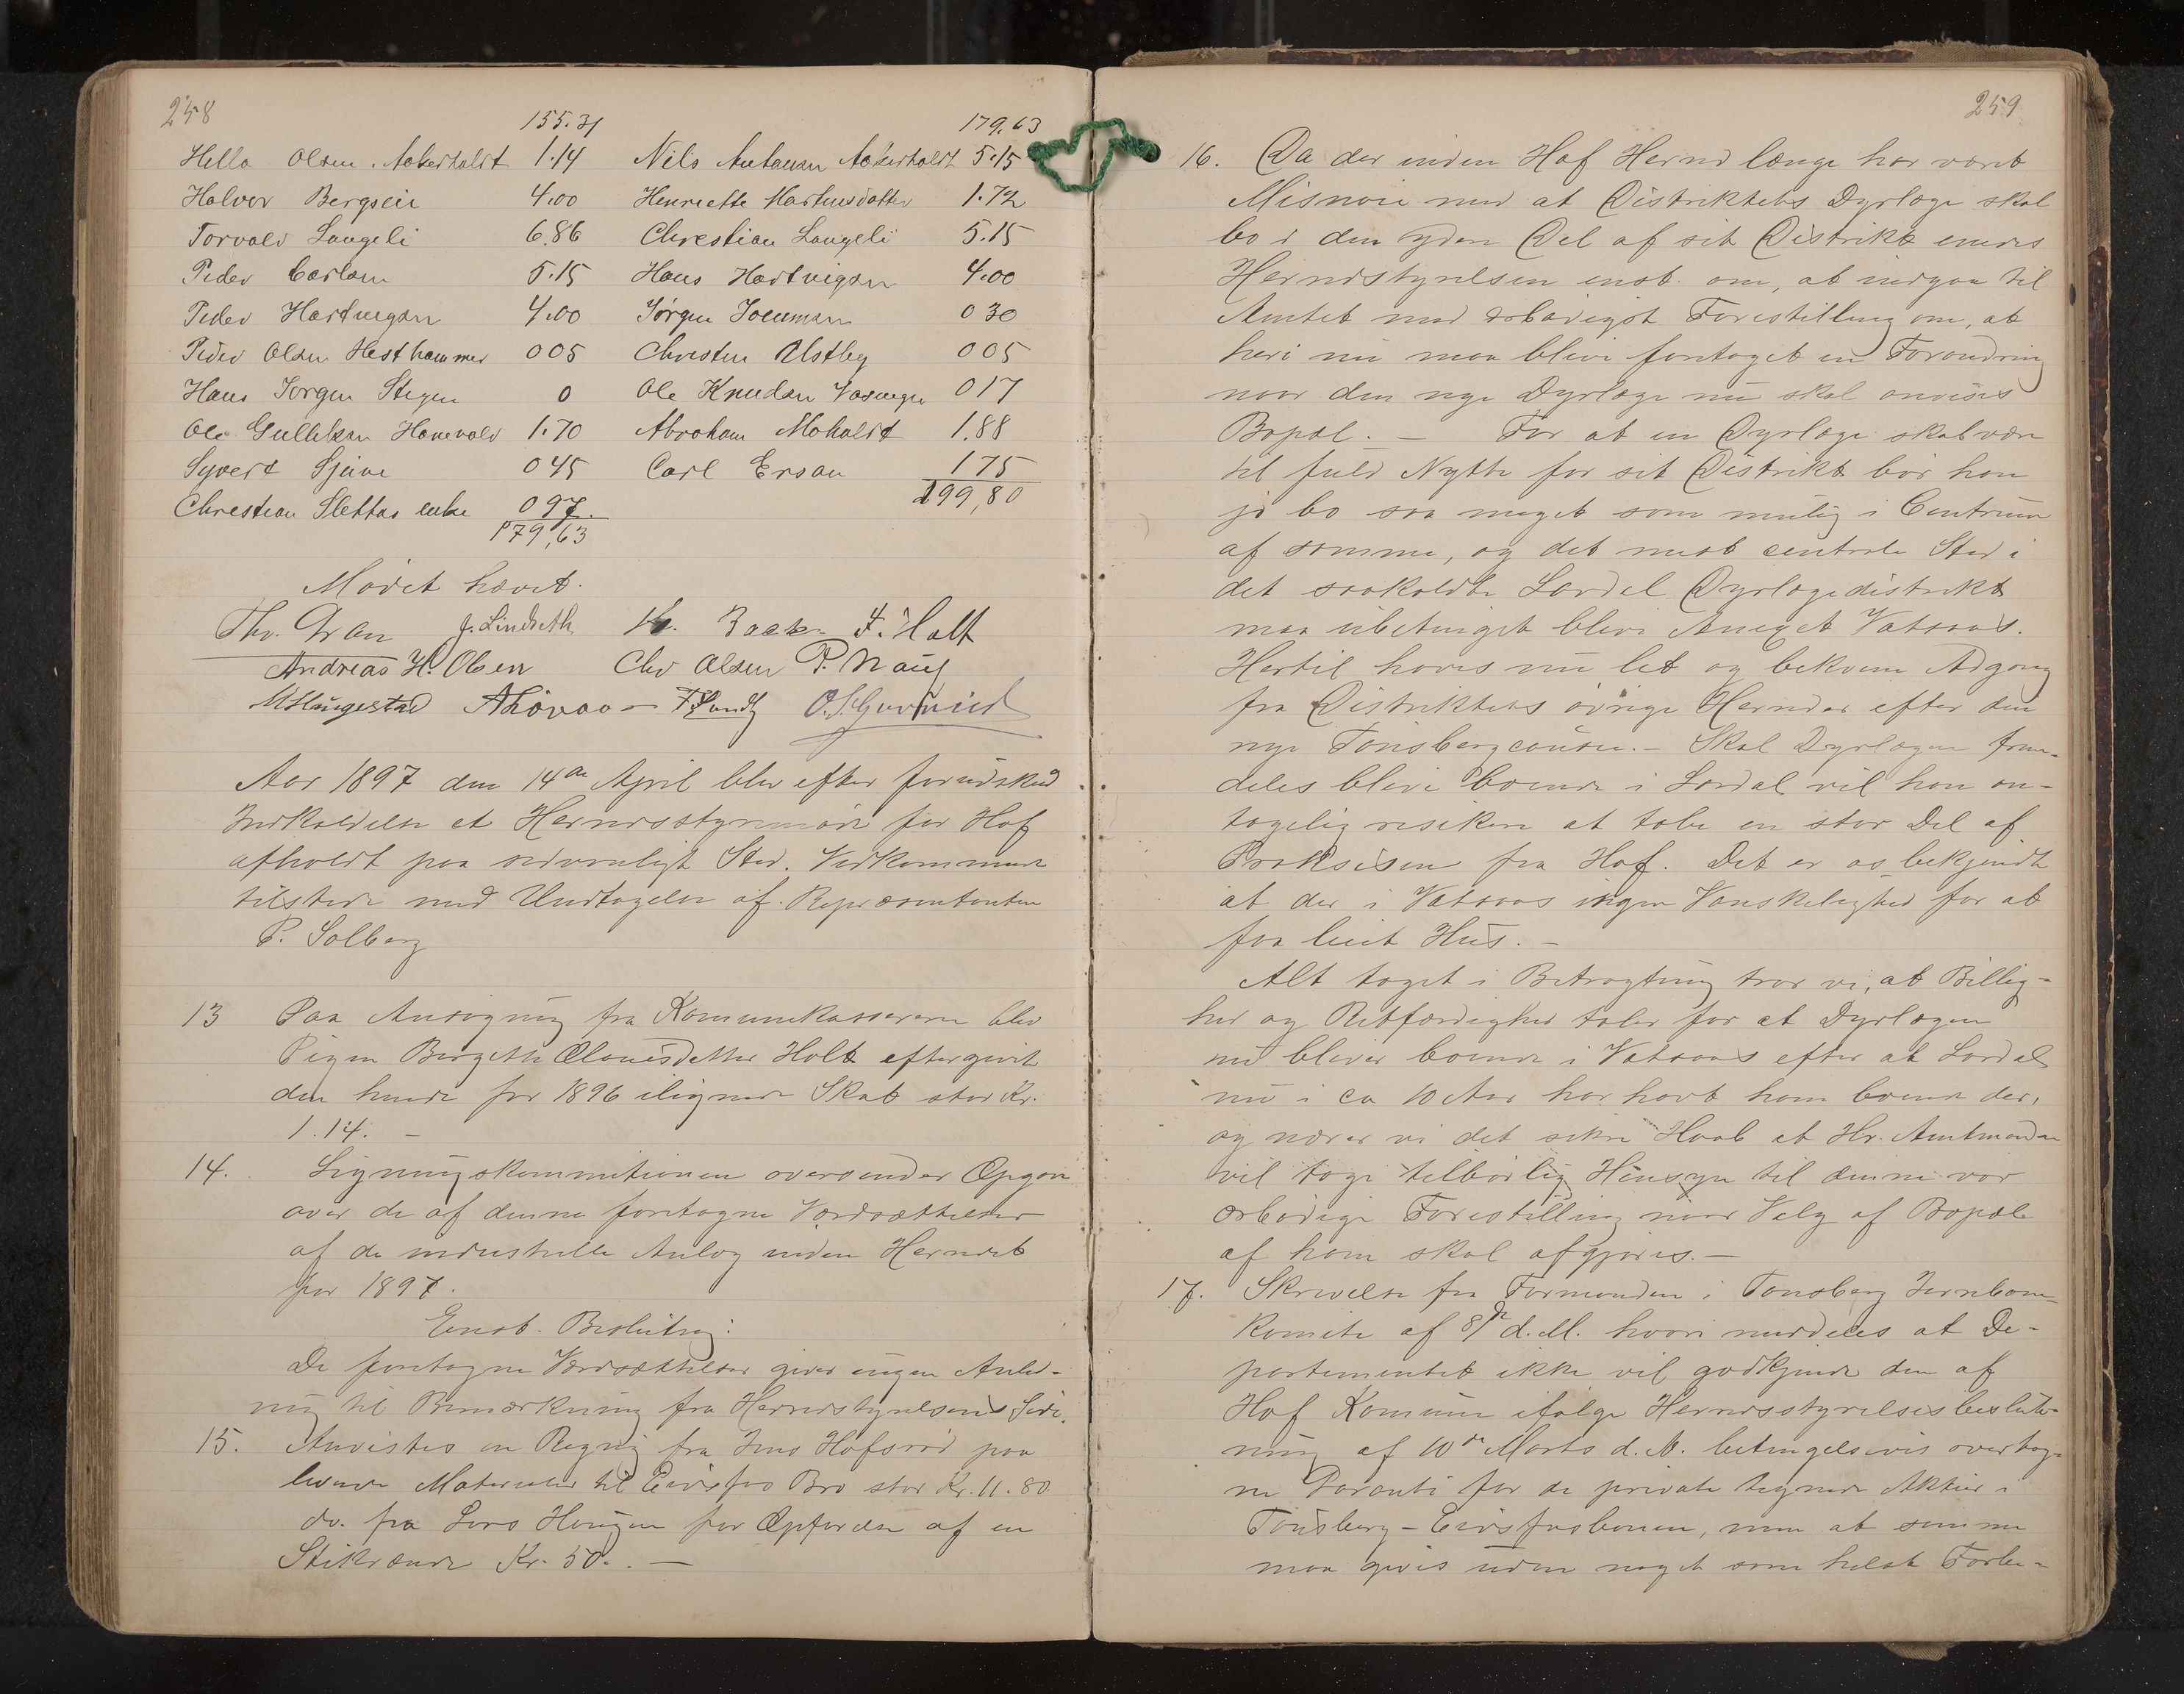 258
155.31
179.63
Hella Olsen Aakerholdt 1.14
Halvor Bergseie 4.00
Torvald Langeli 6.86
Peder Carlsen 5.15
Peder Hartvigsen 4.00
Peder Olsen Hesthammer 005
Hans Jørgen Stegen 0
Ole Gulliksen Hanevald 1.70
Syvert Sjue 045
Christian Slettas enke 097.
179,63
Nils Antonsen Aakerholdt 5.15
Henriette Martinsdatter 1.72
Christian Langeli 5.15
Hans Hartvigsen 4.00
Jørgen 030
Christen Østby 005
Ole Knudsen 017
Abraham Moholdt 1.88
Carl Ersan 175
199,80
Mødet hævet.
Thv. Gran J. Lindseth Kr. Backe F. Holt
Andreas H. Olsen Chr Olsen P. Nauf
M Haugestad AHovac F Sundby
Aar 1897 den 14de April blev efter forudskud
Indkaldelse et Herredsstyremøde for Hof
afholdt paa sedvanligt Sted. Vedkommende
tilstede med Undtagelse af Repræsentanten
P. Solberg
13 Paa Ansøgning fra Kommunekassereren blev
Pigen Birgethe Clausdatter Holt eftergivet
den hende for 1896 ilignede Skat stor Kr.
1.14. —
14. Ligningskommitionen oversender Opgave
over de af denne foretagne Værdsættelser
af de industrielle Anlæg inden Herredet
for 1897.
Enst. Beslutning:
De foretagne Værdsættelser giver ingen Anled-
ning til Bemærkning fra Herredstyrelsens Side.
15. Anvistes en Regning fra Jens Hofsrød paa
leverede Materialer til Eidsfos Bro stor Kr. 11.80
do. fra Lars Haugen for Opførelse af en
Stikrænde Kr. 50. —
259
16. Da der inden Hof Herred længe har været
Misnøie med at Distriktets Dyrlæge skal
bo i den ydre Del af sit Distrikt enedes
Herredstyrelsen enst. om, at indgaa til
Amtet med ærbødigst Forestilling om, at
heri nu maa blive foretaget en Forandring
naar den nye Dyrlæge nu skal anvises
Bopæl. — For at en Dyrlæge skal være
til fuld Nytte for sit Distrikt bør han
jo bo saa meget som mulig i Centrum
af samme, og det mest centrale Sted i
det saakaldte Lardal Dyrlægedistrikt
maa ubetinget blive Annexet Vassaas.
Hertil haves nu let og bekvem Adgang
fra Distriktets øvrige Herreder efter den
nye Tønsbergchausse. — Skal Dyrlægen frem-
deles blive boende i Lardal vil han an-
tagelig risikere at tabe en stor Del af
Praksisen fra Hof. Det er os bekjendt
at der i Vassaas ingen Vanskelighed for at
faa leiet Hus. —
Alt taget i Betragtning tror vi, at Billig-
hed og Retfærdighed taler for at Dyrlægen
nu bliver boende i Vassaas efter at Lardal
nu i ca 10 Aar har havt ham boende der,
og nærer vi det sikre Haab at Hr. Amtmanden
vil tage tilbørlig Hensyn til denne vor
ærbødige Forestilling naar Valg af Bopæl
af ham skal afgjøres. —
17. Skrivelse fra Formanden i Tønsberg Jernbane-
komite af 8/ d.M. hvori meddeles at De-
partementet ikke vil godkjende den af
Hof Komune ifølge Herredsstyrelsesbeslut-
ning af 10de Marts d. A. betingelsesvis overtag-
ne Garanti for de private tegnede Aktier i
Tønsberg-Eidsfosbanen, men at samme
maa gives uden noget som helst Forbe-